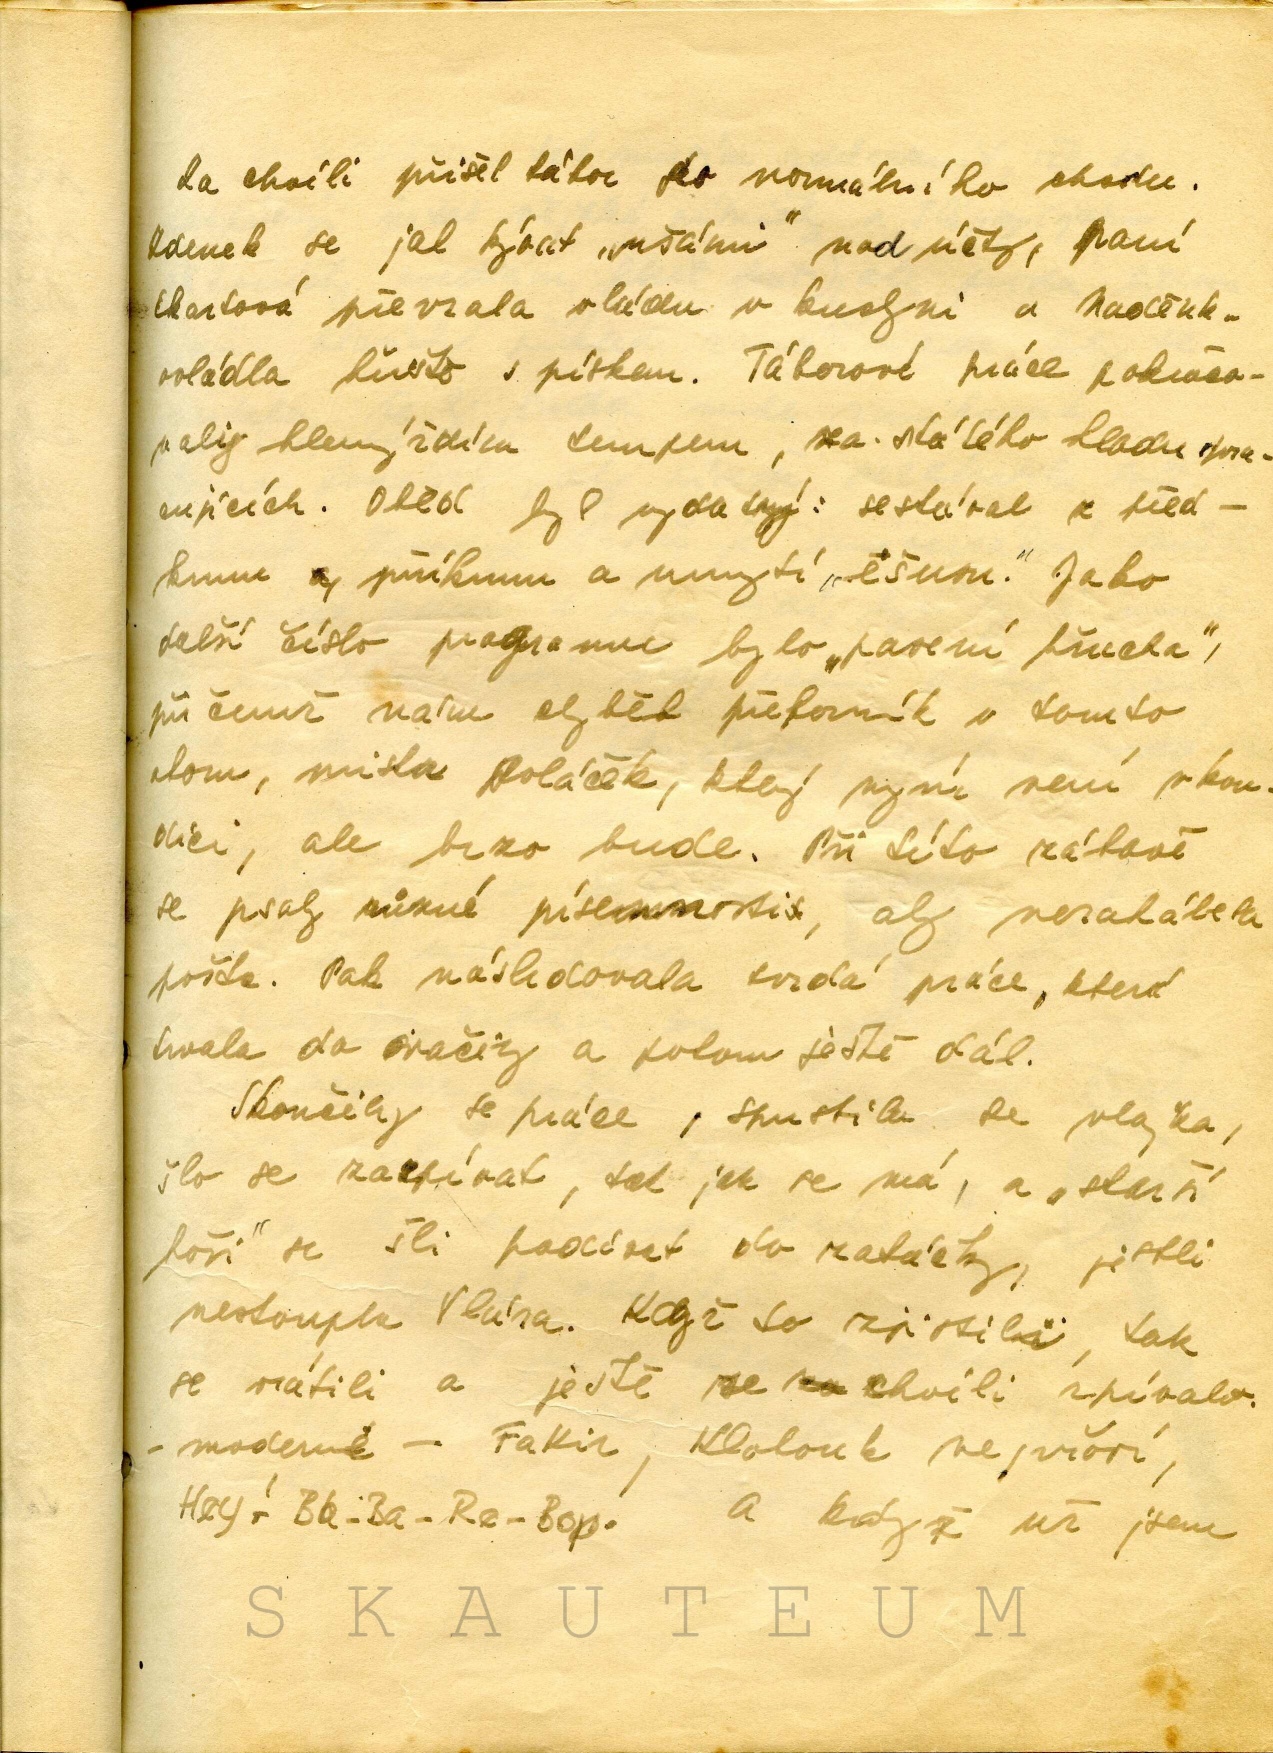 Za chvíli přišel tábor do normálního chodu.
Zdenek se jal kývat „ušámi" nad účty, paní
převzala vládu v kuchyni a Naděnk-
ovládla s pískem. Táborové práce pokračo-
valy hlemýždím tempem, za stálého hladu pra-
cujících. Oběd byl vydatný: sestával z před-
krmu a příkrmu a umytí „ěšusu." Jako
další číslo programu bylo „pasení břucha",
při čemž nám chyběl přeborník v tomto
oboru, mistr Koláček, který nyní není v kon-
dici, ale brzo bude. Při této zábavě
se psaly různé písemnosti, aby nezahálela
pošta. Pak následovala tvrdá práce, která
trvala do svačiny a potom ještě dál.
Skončily se práce, spustila se vlajka,
šlo se zazpívat, tak jak se má, a „starší
hoši" se šli podívat do zatáčky, jestli
nestoupla Vlára. Když to zjistili, tak
se vrátili a ještě se chvíli zpívalo.
- moderně - Fakir, Klobouk nejvěčí,
Hey-Ba-Ba-Re-Bop. A když už jsem
SKAUTEUM